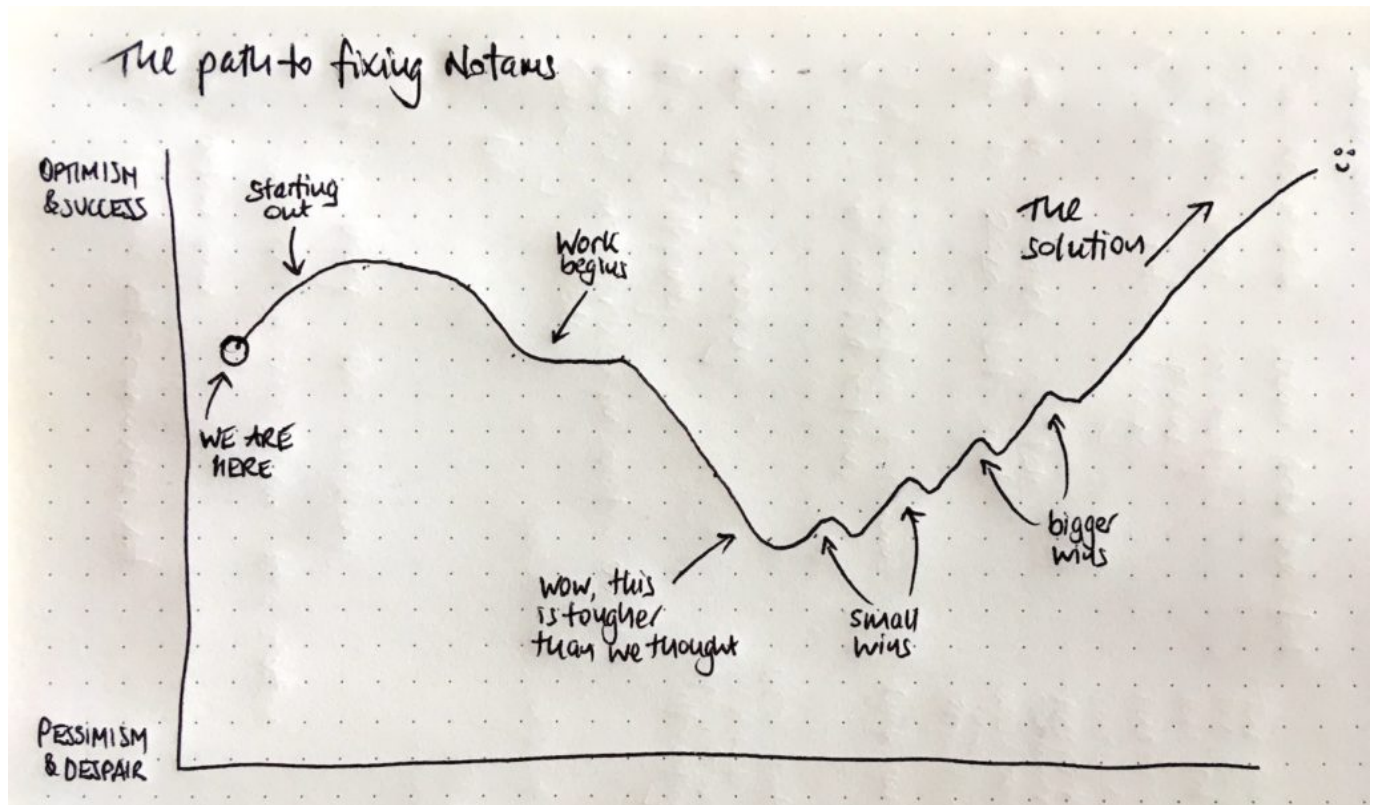 The path to fixing Notams
OPTIMISM
& SUCCESS
starting
out
Work
begins
The
solution
WE ARE
HERE
wow, this
is tougher
than we thought
small
wins
bigger
wins
PESSIMISM
& DESPAIR